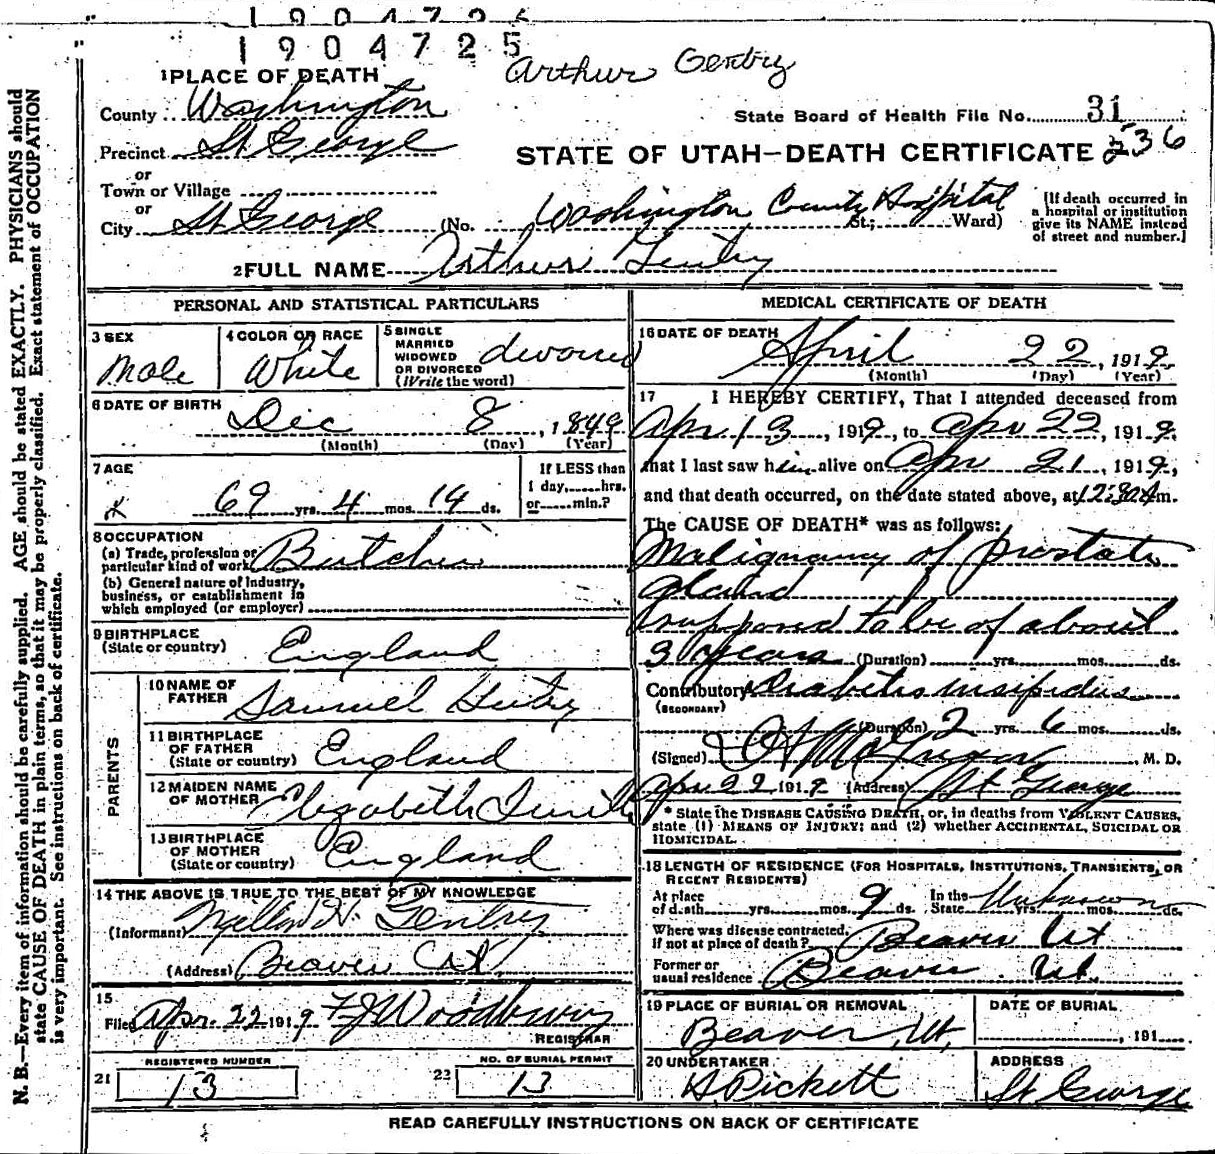 1904725
Arthur Gentry
1 PLACE OF DEATH
County Washington
State Board of Health File No. 31
Precinct St George
STATE OF UTAH—DEATH CERTIFICATE 236
or
Town or Village
or
City St George (No. Washington County Hospital St.; Ward)
[If death occurred in
a hospital or institution
give its NAME instead
of street and number.]
2 FULL NAME Arthur Gentry
PERSONAL AND STATISTICAL PARTICULARS
3 SEX
Male
4 COLOR OR RACE
White
5 SINGLE
MARRIED
WIDOWED
OR DIVORCED
(Write the word)
divorced
6 DATE OF BIRTH
Dec 8, 1849
(Month) (Day) (Year)
7 AGE
69 yrs. 4 mos. 14 ds.
If LESS than
1 day, hrs.
or min.?
8 OCCUPATION
(a) Trade, profession or
particular kind of work Butcher
(b) General nature of Industry,
business, or establishment in
which employed (or employer)
9 BIRTHPLACE
(State or country) England
PARENTS
10 NAME OF
FATHER Samuel
11 BIRTHPLACE
OF FATHER
(State or country) England
12 MAIDEN NAME
OF MOTHER Elizabeth
13 BIRTHPLACE
OF MOTHER
(State or country) England
14 THE ABOVE IS TRUE TO THE BEST OF MY KNOWLEDGE
(Informant) H. Gentry
(Address) Beaver Ut
15
Filed Apr. 22 1919 F J Woodbury
REGISTRAR
REGISTERED NUMBER
21 13
NO. OF BURIAL PERMIT
22 13
MEDICAL CERTIFICATE OF DEATH
16 DATE OF DEATH
April 22, 1919
(Month) (Day) (Year)
17 I HEREBY CERTIFY, That I attended deceased from
Apr 13, 1919, to Apr 22, 1919,
that I last saw him alive on Apr 21, 1919,
and that death occurred, on the date stated above, at 12:30 A m.
The CAUSE OF DEATH* was as follows:
Malignancy of prostate
gland
supposed to be of about
3 years (Duration) yrs. mos. ds.
Contributory Diabetis insipidus
(SECONDARY)
(Duration) 2 yrs. 6 mos. ds.
(Signed) McGregor, M. D.
Apr 22 1919 (Address) St George
* State the DISEASE CAUSING DEATH, or, in deaths from VIOLENT CAUSES,
state (1) MEANS OF INJURY; and (2) whether ACCIDENTAL, SUICIDAL OR
HOMICIDAL.
18 LENGTH OF RESIDENCE (FOR HOSPITALS, INSTITUTIONS, TRANSIENTS, OR
RECENT RESIDENTS)
At place
of death yrs. mos. 9 ds.
In the
State Unknown yrs. mos. ds.
Where was disease contracted,
if not at place of death? Beaver Ut
Former or
usual residence Beaver Ut.
19 PLACE OF BURIAL OR REMOVAL
Beaver, Ut.
DATE OF BURIAL
, 191
20 UNDERTAKER
Pickett
ADDRESS
St George
READ CAREFULLY INSTRUCTIONS ON BACK OF CERTIFICATE
N. B.—Every item of information should be carefully supplied. AGE should be stated EXACTLY. PHYSICIANS should
state CAUSE OF DEATH in plain terms, so that it may be properly classified. Exact statement of OCCUPATION
is very important. See instructions on back of certificate.